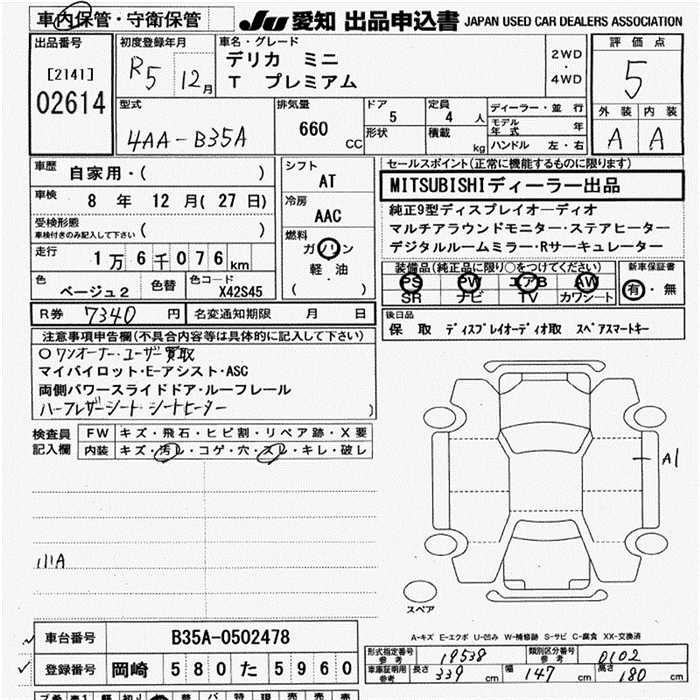 車内保管・守衛保管
JU 愛知 出品申込書 JAPAN USED CAR DEALERS ASSOCIATION
出品番号
[2141]
02614
初度登録年月
R5 12月
車名・グレード
デリカ ミニ
T プレミアム
2WD
・
4WD
評価点
5
外装 内装
A A
型式
4AA-B35A
排気量
660 CC
ドア
5
形状
定員
4 人
積載
kg
ディーラー・並行
モデル年式 年
ハンドル 左・右
車歴
自家用・( )
車検
8 年 12 月(27 日)
受検形態
車検付きのみ記入して下さい ( )
走行
1万6千076km
色
ベージュ2
色替
色コード
X42S45
シフト
AT
冷房
AAC
燃料
ガソリン
軽・油
( )
セールスポイント(正常に機能するものに限ります)
MITSUBISHIディーラー出品
純正9型ディスプレイオーディオ
マルチアラウンドモニター・ステアヒーター
デジタルルームミラー・Rサーキュレーター
装備品(純正品に限り○をつけてください)
PS PW エアB AW
SR ナビ TV カワシート
新車保証書
有・無
R券 7340 円
名変通知期限 月 日
後日品
保 取 ディスプレイオーディオ取 スペアスマートキー
注意事項申告欄(不具合内容等は具体的に記入して下さい)
○ワンオーナー・ユーザー買取
マイパイロット・E-アシスト・ASC
両側パワースライドドア・ルーフレール
ハーフレザーシート・シートヒーター
)
検査員
記入欄
FW キズ・飛石・ヒビ割・リペア跡・X要
内装 キズ・汚レ・コゲ・穴・スレ・キレ・破レ
A1
小A
スペア
A-キズ E-エクボ U-凹み W-補修跡 S-サビ C-腐食 XX-交換済
車台番号 B35A-0502478
登録番号 岡崎 580 た 5960
型式指定番号
参考
19538
類別区分番号
参考
0102
車庫証明用
参考
長さ 339 cm 幅 147 cm 高さ 180 cm